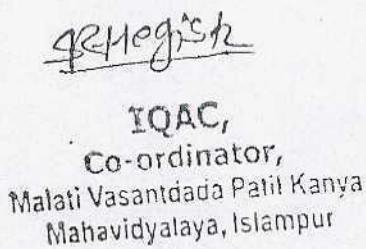 IQAC,
Co-ordinator,
Malati Vasantdada Patil Kanya
Mahavidyalaya, Islampur